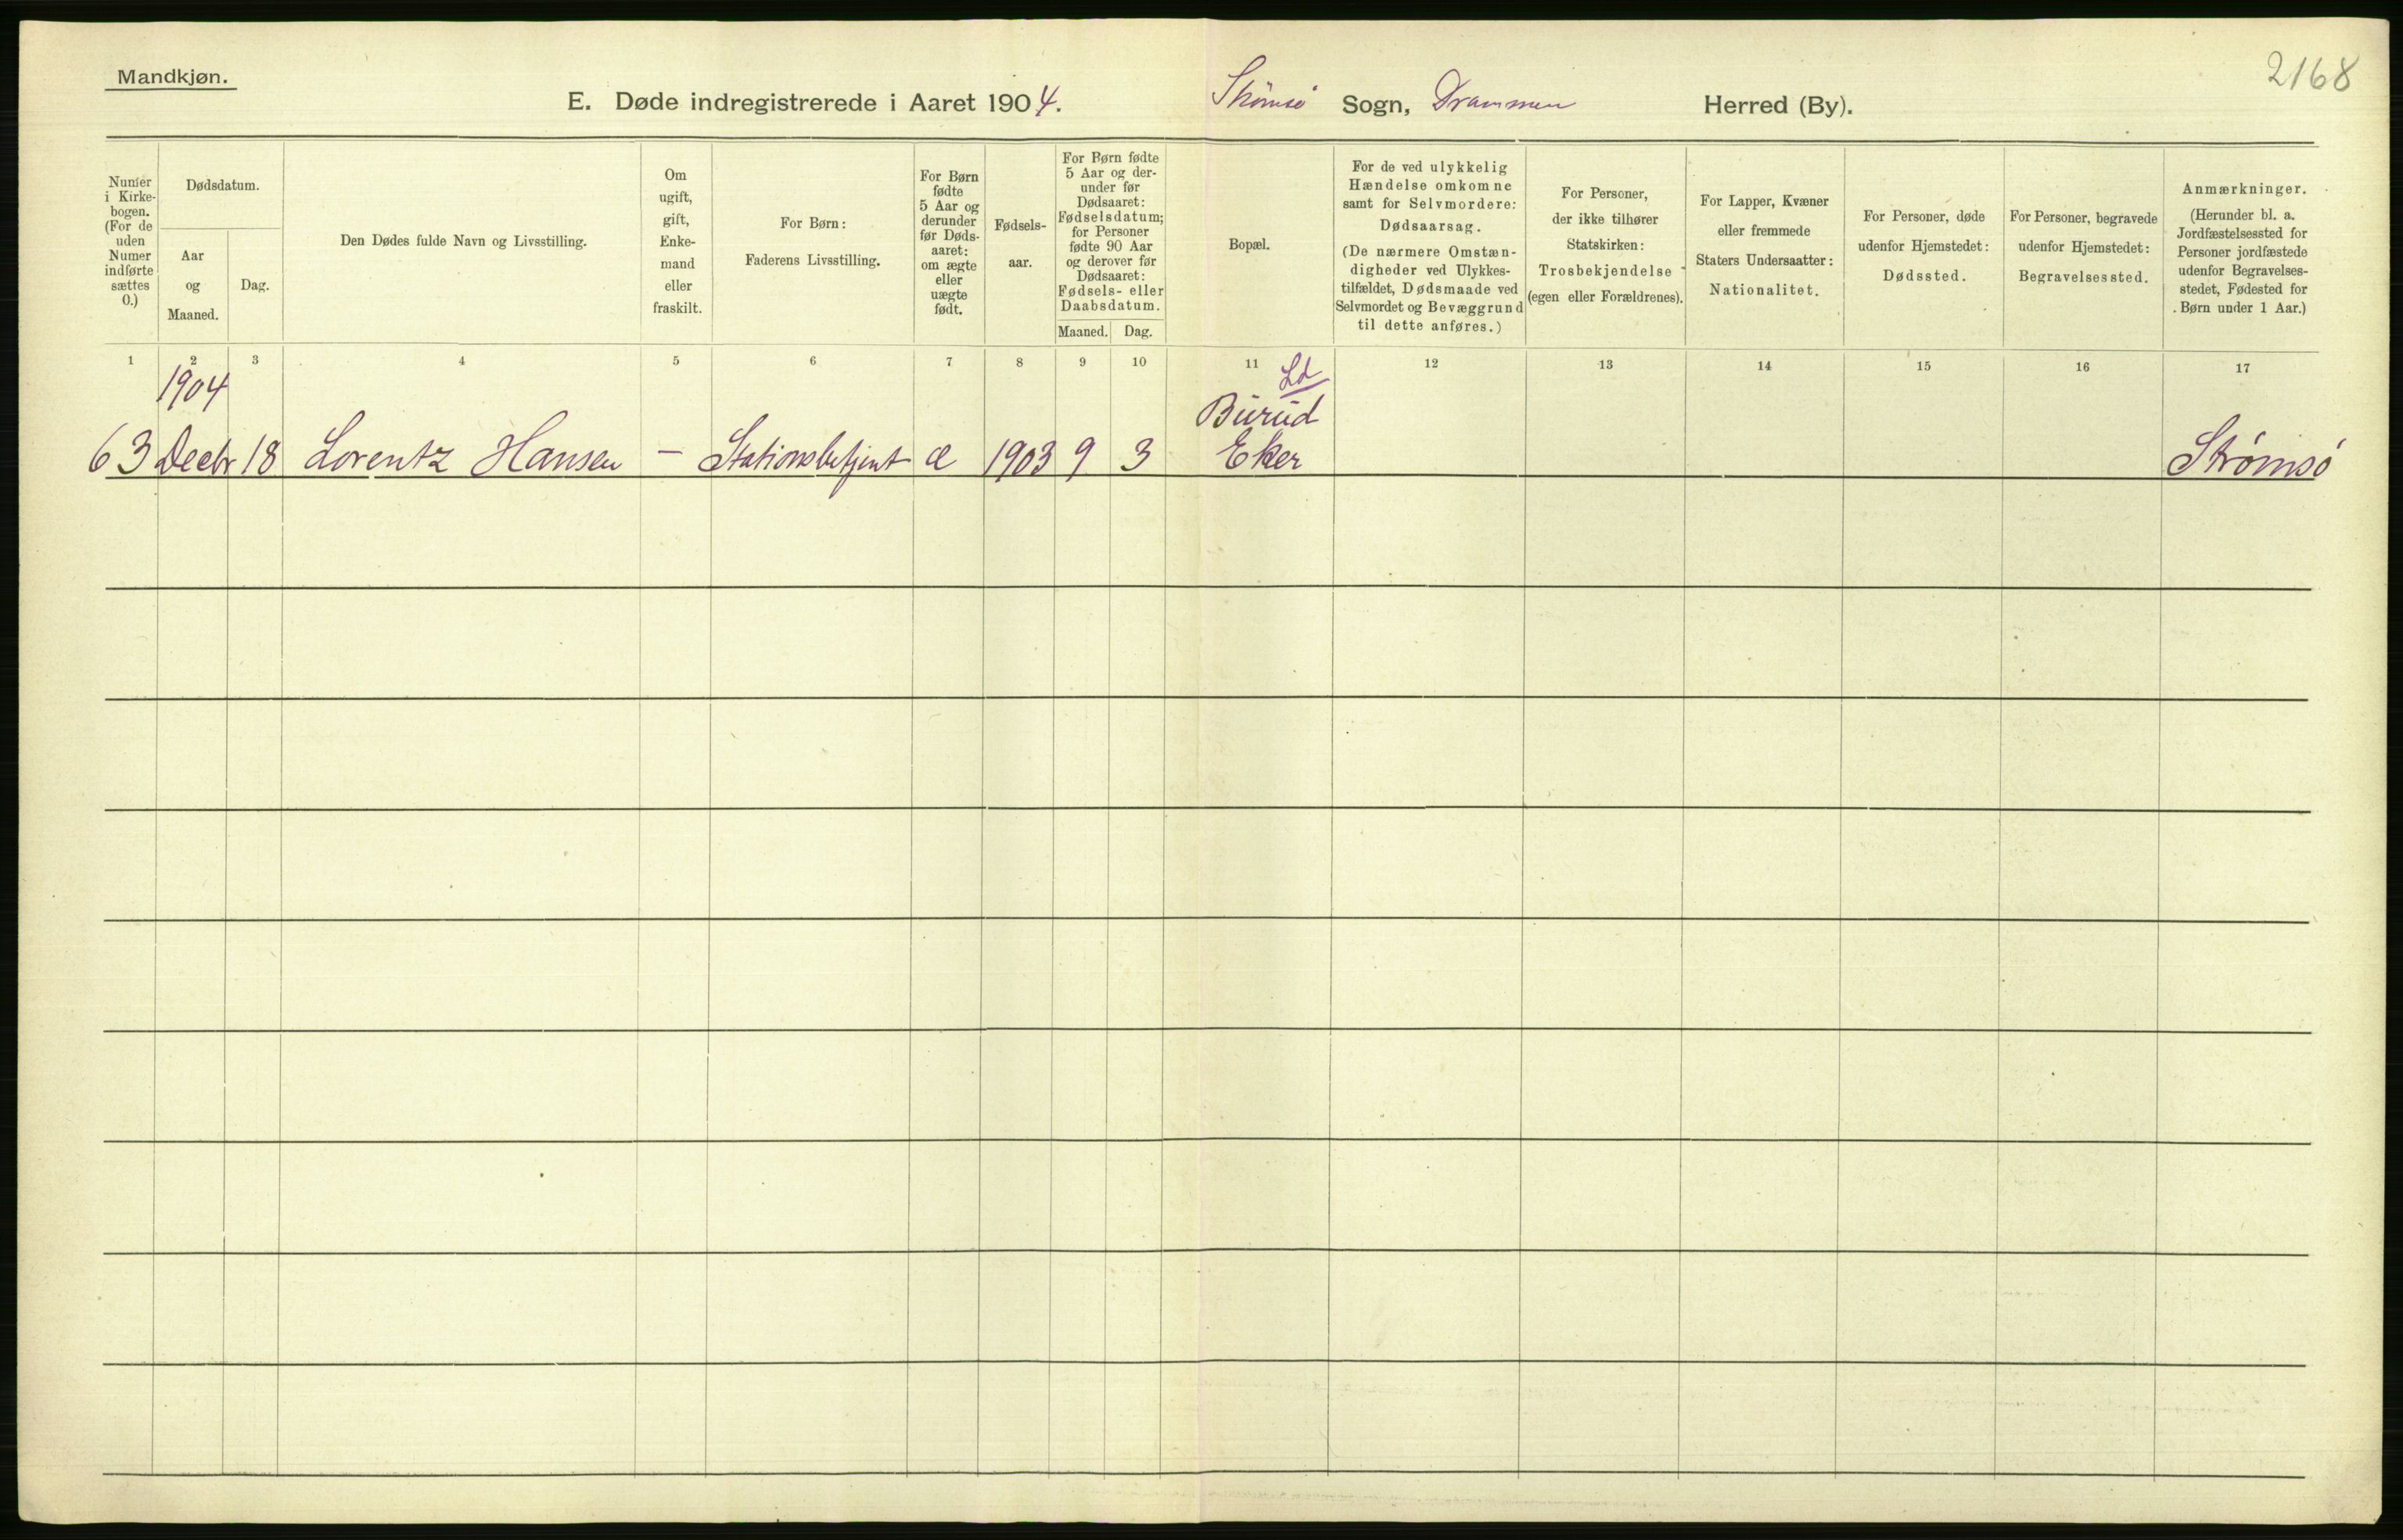 Mandkjøn.
2168
E. Døde indregistrerede i Aaret 1904.
Strömsö Sogn, Drammen Herred (By).
Numer
i Kirke-
bogen.
(For de
uden
Numer
indførte
sættes
0.)
Dødsdatum.
Aar
og
Maaned.
Dag.
Den Dødes fulde Navn og Livsstilling.
Om
ugift,
gift,
Enke-
mand
eller
fraskilt.
For Børn:
Faderens Livsstilling.
For Børn
fødte
5 Aar og
derunder
før Døds-
aaret:
om ægte
eller
uægte
født.
Fødsels-
aar.
For Børn fødte
5 Aar og der-
under før
Dødsaaret:
Fødselsdatum;
for Personer
fødte 90 Aar
og derover før
Dødsaaret:
Fødsels- eller
Daabsdatum.
Maaned. Dag.
Bopæl.
For de ved ulykkelig
Hændelse omkomne
samt for Selvmordere:
Dødsaarsag.
(De nærmere Omstæn-
digheder ved Ulykkes-
tilfældet, Dødsmaade ved
Selvmordet og Bevæggrund
til dette anføres.)
For Personer,
der ikke tilhører
Statskirken:
Trosbekjendelse
(egen eller Forældrenes).
For Lapper, Kvæner
eller fremmede
Staters Undersaatter:
Nationalitet.
For Personer, døde
udenfor Hjemstedet:
Dødssted.
For Personer, begravede
udenfor Hjemstedet:
Begravelsessted.
Anmærkninger.
(Herunder bl. a.
Jordfæstelsessted for
Personer jordfæstede
udenfor Begravelses-
stedet, Fødested for
Børn under 1 Aar.)
1 2 3 4 5 6 7 8 9 10 11 12 13 14 15 16 17
1904
Ld
Burud
63 Decbr 18 Lorentz Hansen – Stationsbetjent æ 1903 9 3 Eker Strømsö